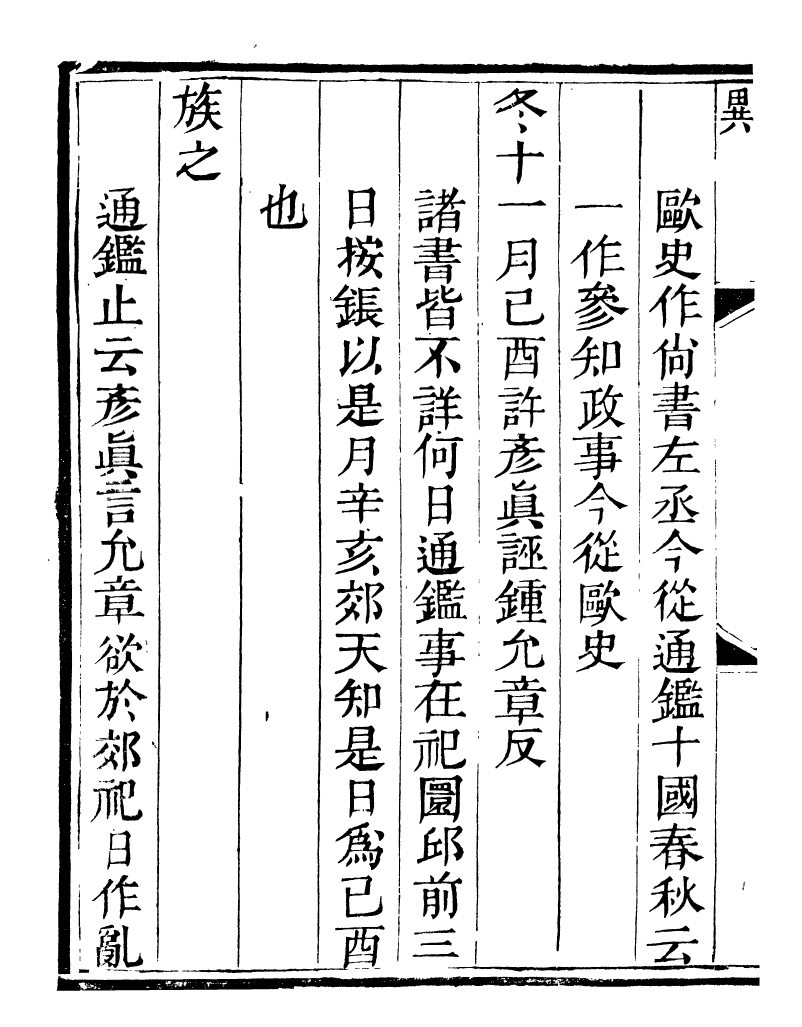 異
歐史作尙書左丞今從通鑑十國春秋云
一作參知政事今從歐史
冬十一月己酉許彥眞誣鍾允章反
諸書皆不詳何日通鑑事在祀圜邱前三
日按鋹以是月辛亥郊天知是日爲己酉
也
族之
通鑑止云彥眞言允章欲於郊祀日作亂